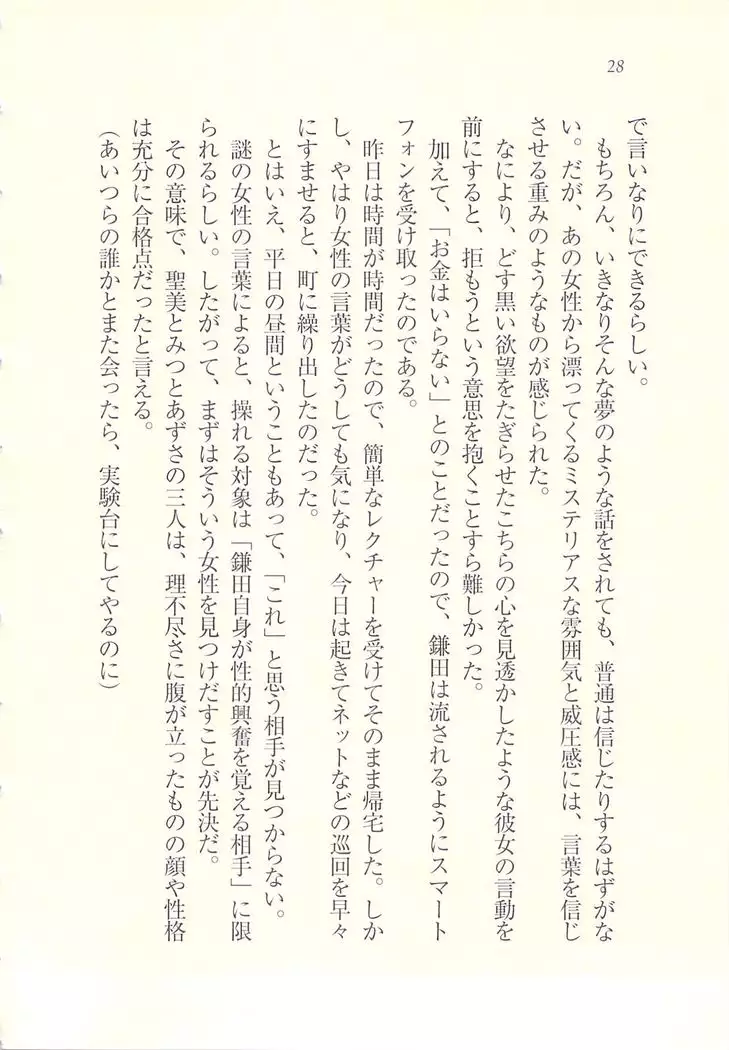 28
で言いなりにできるらしい。
もちろん、いきなりそんな夢のような話をされても、普通は信じたりするはずがな
い。だが、あの女性から漂ってくるミステリアスな雰囲気と威圧感には、言葉を信じ
させる重みのようなものが感じられた。
なにより、どす黒い欲望をたぎらせたこちらの心を見透かしたような彼女の言動を
前にすると、拒もうという意思を抱くことすら難しかった。
加えて、「お金はいらない」とのことだったので、鎌田は流されるようにスマート
フォンを受け取ったのである。
昨日は時間が時間だったので、簡単なレクチャーを受けてそのまま帰宅した。しか
し、やはり女性の言葉がどうしても気になり、今日は起きてネットなどの巡回を早々
にすませると、町に繰り出したのだった。
とはいえ、平日の昼間ということもあって、「これ」と思う相手が見つからない。
謎の女性の言葉によると、操れる対象は「鎌田自身が性的興奮を覚える相手」に限
られるらしい。したがって、まずはそういう女性を見つけだすことが先決だ。
その意味で、聖美とみつとあずさの三人は、理不尽さに腹が立ったものの顔や性格
は充分に合格点だったと言える。
（あいつらの誰かとまた会ったら、実験台にしてやるのに）